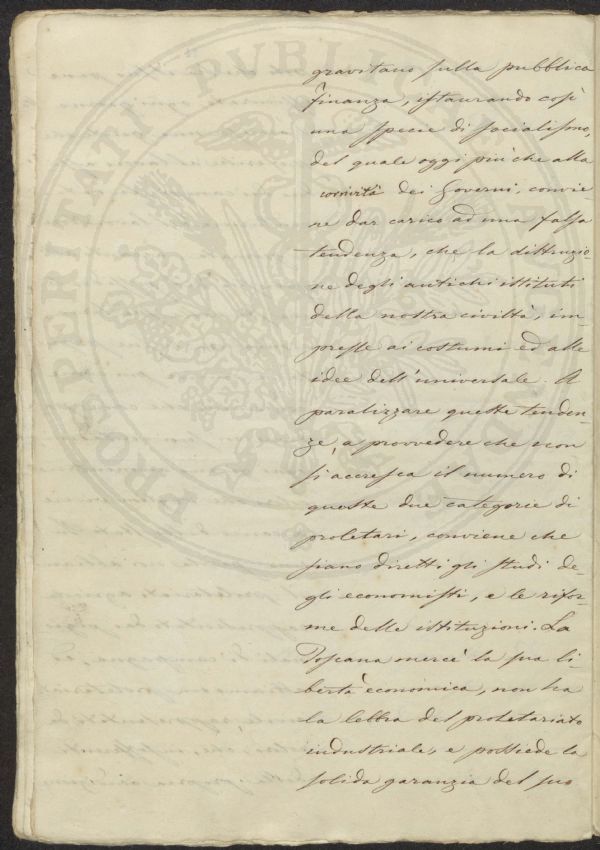 gravitano sulla pubblica
finanza, istaurando così
una specie di socialismo,
del quale oggi più che alla
corrività dei Governi, convie-
ne dar carico ad una falsa
tendenza, che la distruzio-
ne degli antichi istituti
della nostra civiltà, im-
presse ai costumi ed alle
idee dell'universale. A
paralizzare queste tenden-
ze, a provvedere che non
si accresca il numero di
queste due categorie di
proletari, conviene che
siano diretti gli studi de-
gli economisti, e le rifor-
me delle istituzioni. La
Toscana mercè la sua li-
bertà economica, non ha
la lebbra del proletariato
industriale, e possiede la
solida garanzia del suo
PROSPERITATI PVBLICAE